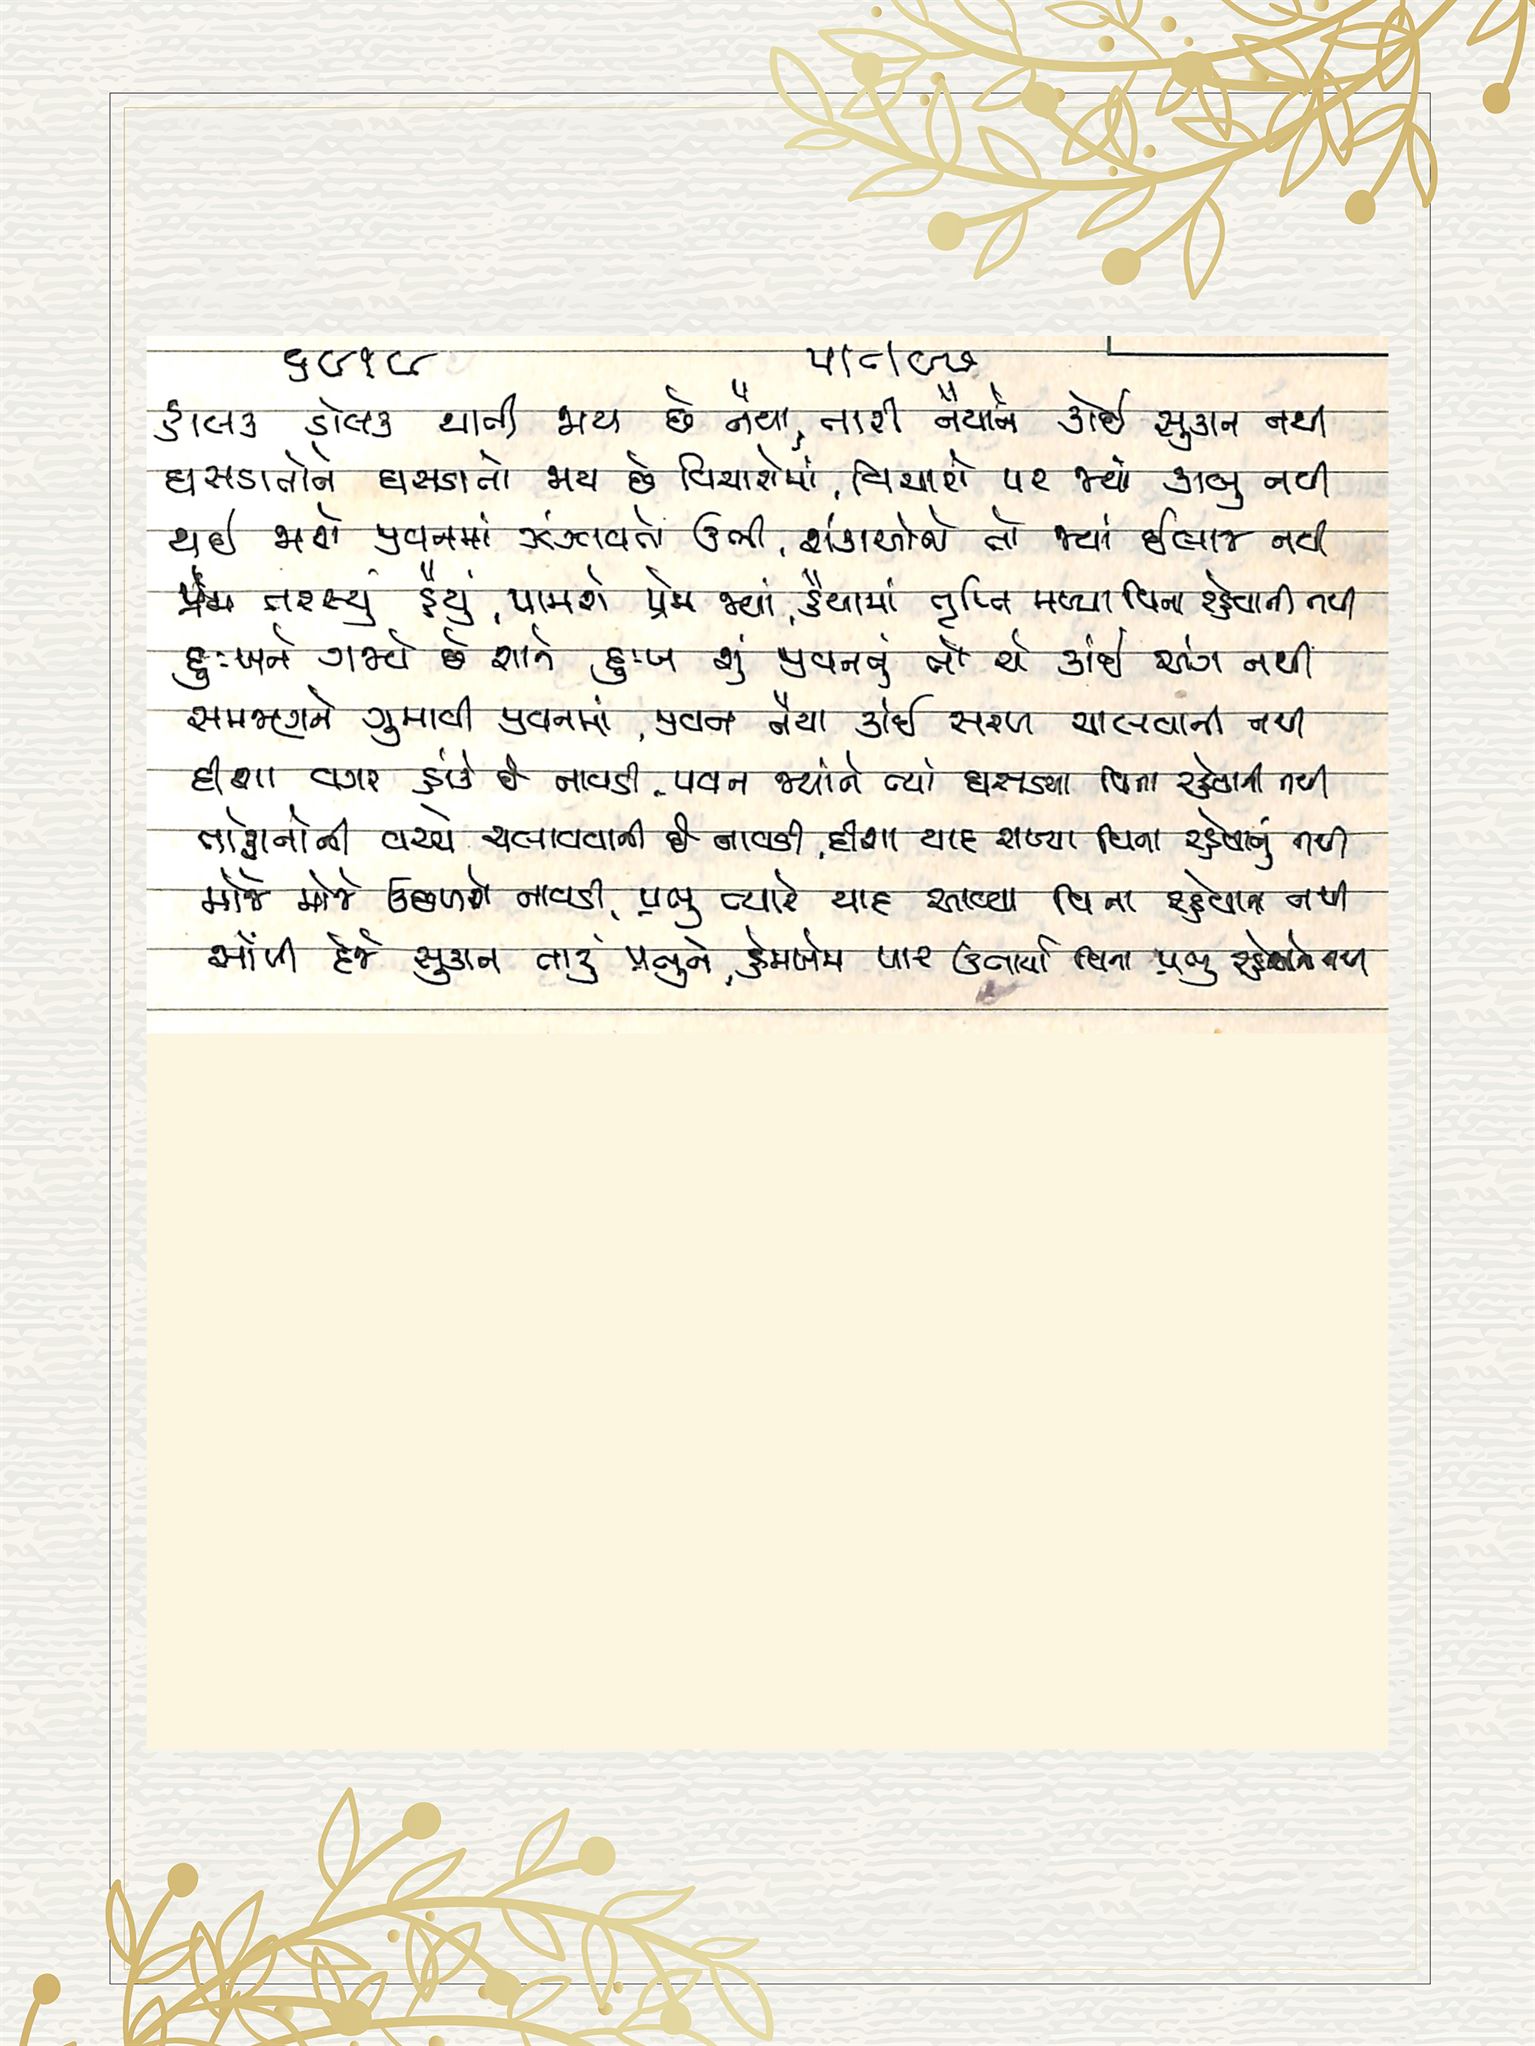 ૬૯૧૯ ૫/૮/૯૭
હાલક ડોલક થાતી જાય છે નૈયા, તારી નૈયાને કોઈ સુકાન નથી
ઘસડાતોને ઘસડાતો જાય છે વિચારોમાં, વિચારો પર જ્યાં કાબુ નથી
થઈ જાશે જીવનમાં ઝંઝાવાતો ઉભી, શંકાઓનો તો જ્યાં ઈલાજ નથી
પ્રેમ તરસ્યું હૈયું, પામશે પ્રેમ જ્યાં, હૈયામાં તૃપ્તિ મળ્યા વિના રહેવાની નથી
દુઃખને ગમ્યો છે શાને દુઃખ શું જીવનનું તો એ કાંઈ અંગ નથી
સમજણને ગુમાવી જીવનમાં, જીવન નૈયા કોઈ સરળ ચાલવાની નથી
દીશા વગર હાંકે છે નાવડી, પવન જ્યાંને ત્યાં ઘસડ્યા વિના રહેવાની નથી
તોફાનોની વચ્ચે ચલાવવાની છે નાવડી, દીશા યાદ રાખ્યા વિના રહેવાનું નથી
મોજે મોજે ઉછળશે નાવડી, પ્રભુ ત્યારે યાદ આવ્યા વિના રહેવાના નથી
સોંપી દેજે સુકાન તારું પ્રભુને, હેમખેમ પાર ઉતાર્યા વિના પ્રભુ રહેવાના નથી